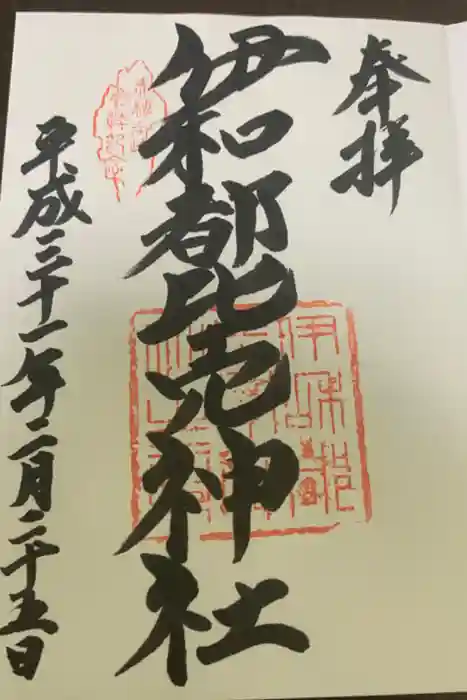 奉拝
伊和都比売神社
平成三十一年二月二十五日